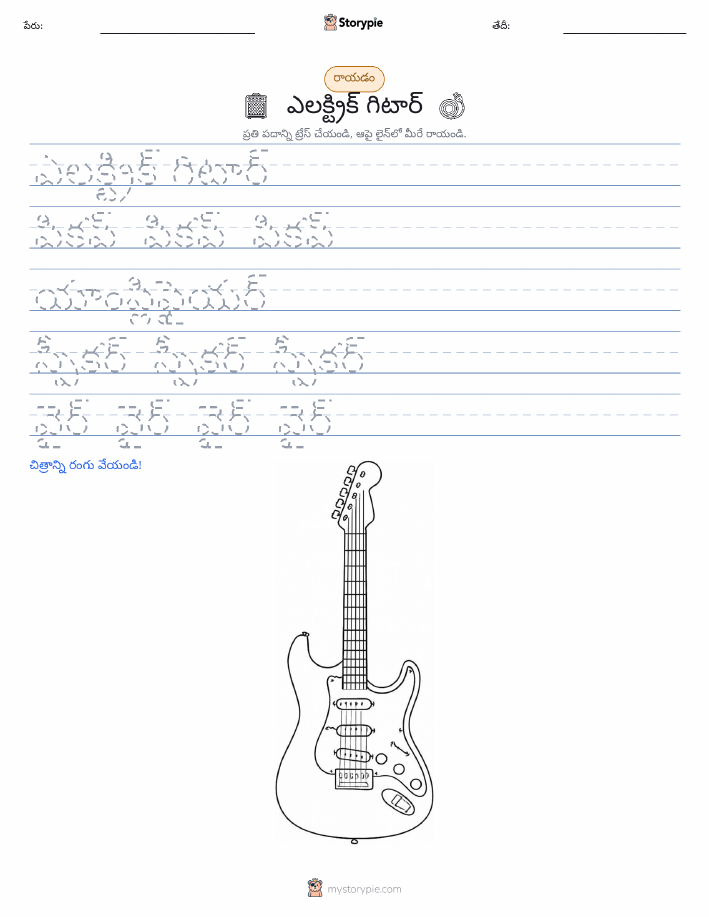 పేరు:
Storypie
తేదీ:
రాయడం
ఎలక్ట్రిక్ గిటార్
ప్రతి పదాన్ని ట్రేస్ చేయండి, ఆపై లైన్‌లో మీరే రాయండి.
ఎలక్ట్రిక్ గిటార్
పికప్ పికప్ పికప్
యాంప్లిఫైయర్
స్పీకర్ స్పీకర్ స్పీకర్
వైర్ వైర్ వైర్ వైర్
చిత్రాన్ని రంగు వేయండి!
mystorypie.com